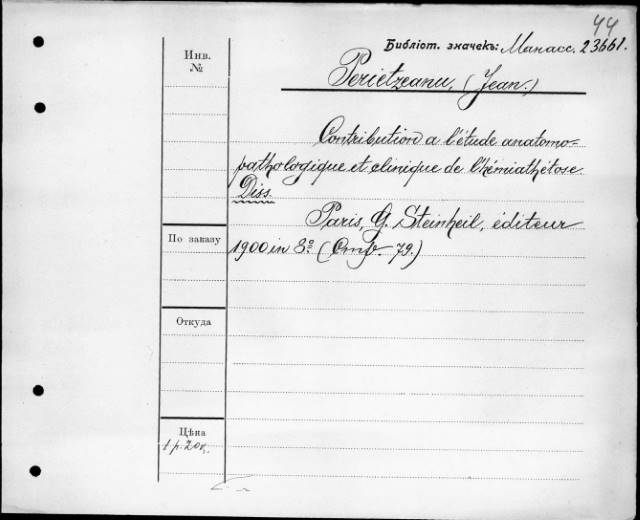 44
Библіот. значекъ: Манасс. 23661.
Инв.
№
Perietzeanu, (Jean.)
Contribution a l'étude anatomo=
pathologique et clinique de l'hémiathétose.
Diss.
Paris, G. Steinheil, éditeur
По заказу
1900 in 8º. (Стр. 79.)
Откуда
Цѣна
1 р. 20 к.